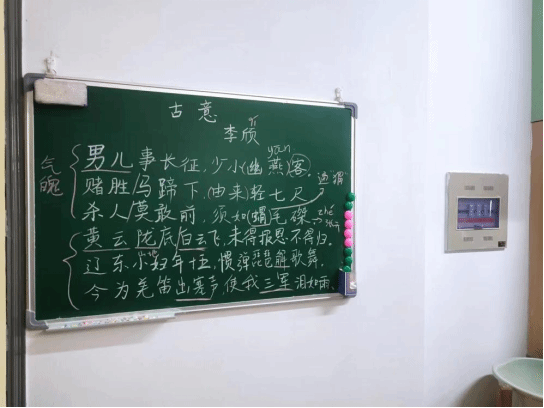 古意
李颀
qí
yān
气魄
男儿事长征，少小(幽燕)客，
赌胜/马蹄下，(由来)轻七尺
边猬
杀人/莫敢前，须如(蝟)毛磔
zhé
黄云陇底/白云飞，未得报恩不得归。
辽东小妇年十五，惯弹琵琶解歌舞，
今为羌笛出塞声，使我三军泪如雨。